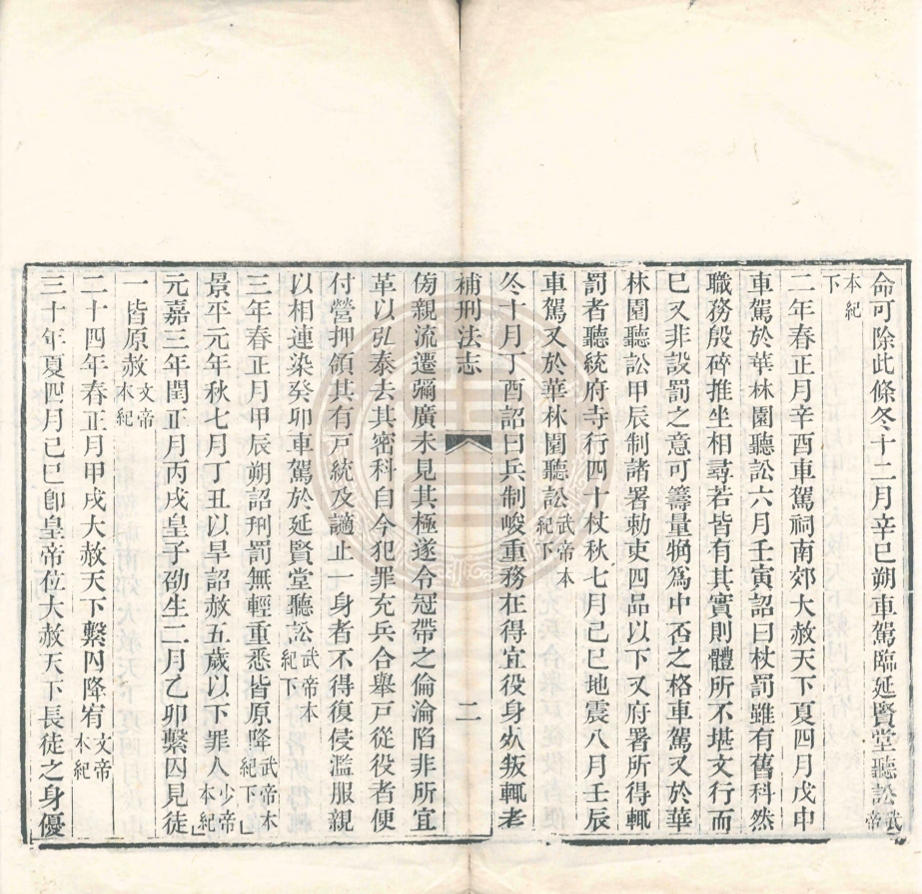 命可除此條冬十二月辛巳朔車駕臨延賢堂聽訟武帝
本紀下
二年春正月辛酉車駕祠南郊大赦天下夏四月戊申
車駕於華林園聽訟六月壬寅詔曰杖罰雖有舊科然
職務殷碎推坐相尋若皆有其實則體所不堪文行而
巳又非設罰之意可籌量觕爲中否之格車駕又於華
林園聽訟甲辰制諸署勅吏四品以下又府署所得輒
罰者聽統府寺行四十杖秋七月己巳地震八月壬辰
車駕又於華林園聽訟武帝本紀下
冬十月丁酉詔曰兵制峻重務在得宜役身死叛輒考
補刑法志
二
傍親流遷彌廣未見其極遂令冠帶之倫淪陷非所宜
革以弘泰去其密科自今犯罪充兵合舉戸從役者便
付營押領其有戸統及謫止一身者不得復侵濫服親
以相連染癸卯車駕於延賢堂聽訟武帝本紀下
三年春正月甲辰朔詔刑罰無輕重悉皆原降武帝本紀下
景平元年秋七月丁丑以旱詔赦五歲以下罪人少帝本紀
元嘉三年閏正月丙戌皇子劭生二月乙卯繫囚見徒
一皆原赦文帝本紀
二十四年春正月甲戌大赦天下繫囚降宥文帝本紀
三十年夏四月己巳卽皇帝位大赦天下長徒之身優